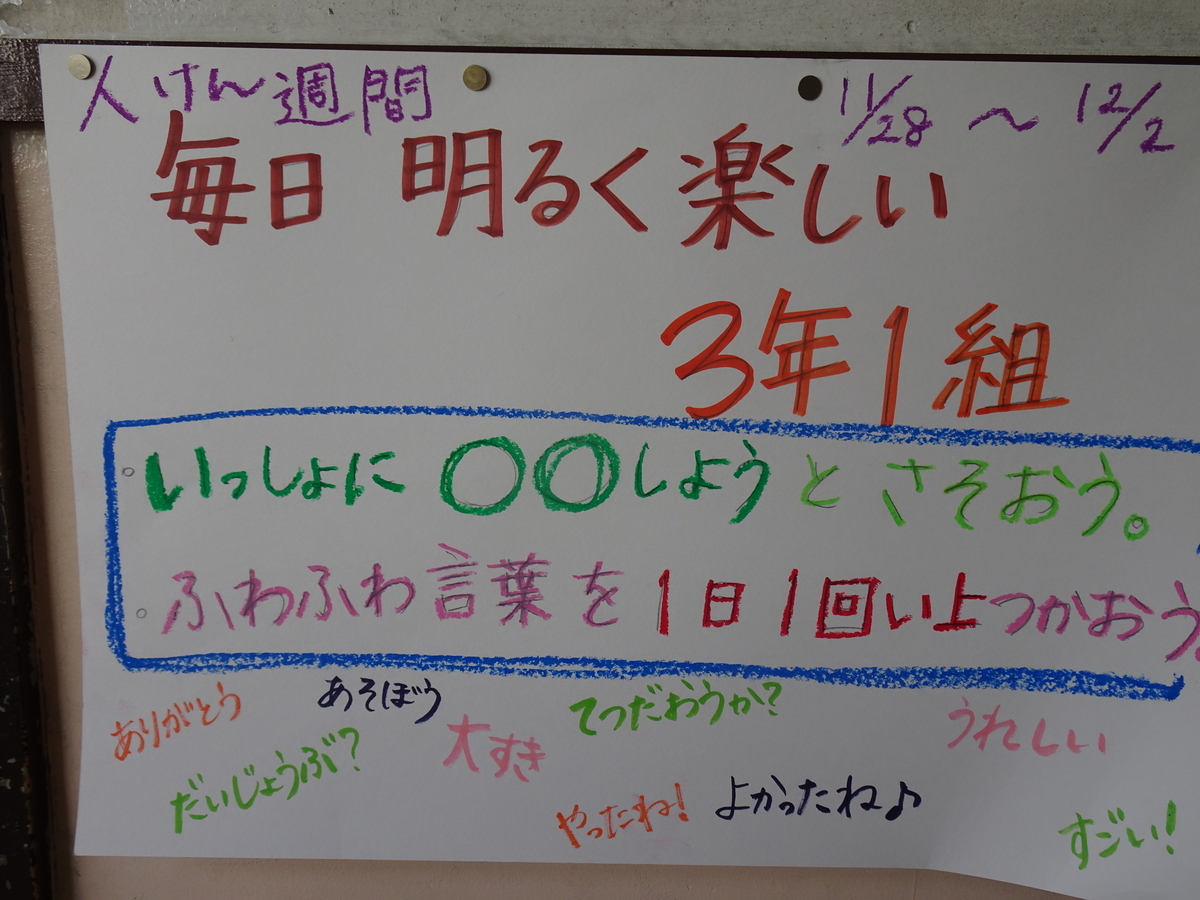 人けん週間 11/28 〜 12/2
毎日 明るく楽しい
3年1組
いっしょに 〇〇しようと さそおう。
ふわふわ言葉を1日1回い上つかおう。
ありがとう あそぼう てつだおうか? うれしい
だいじょうぶ? 大すき
やったね! よかったね♪ すごい!